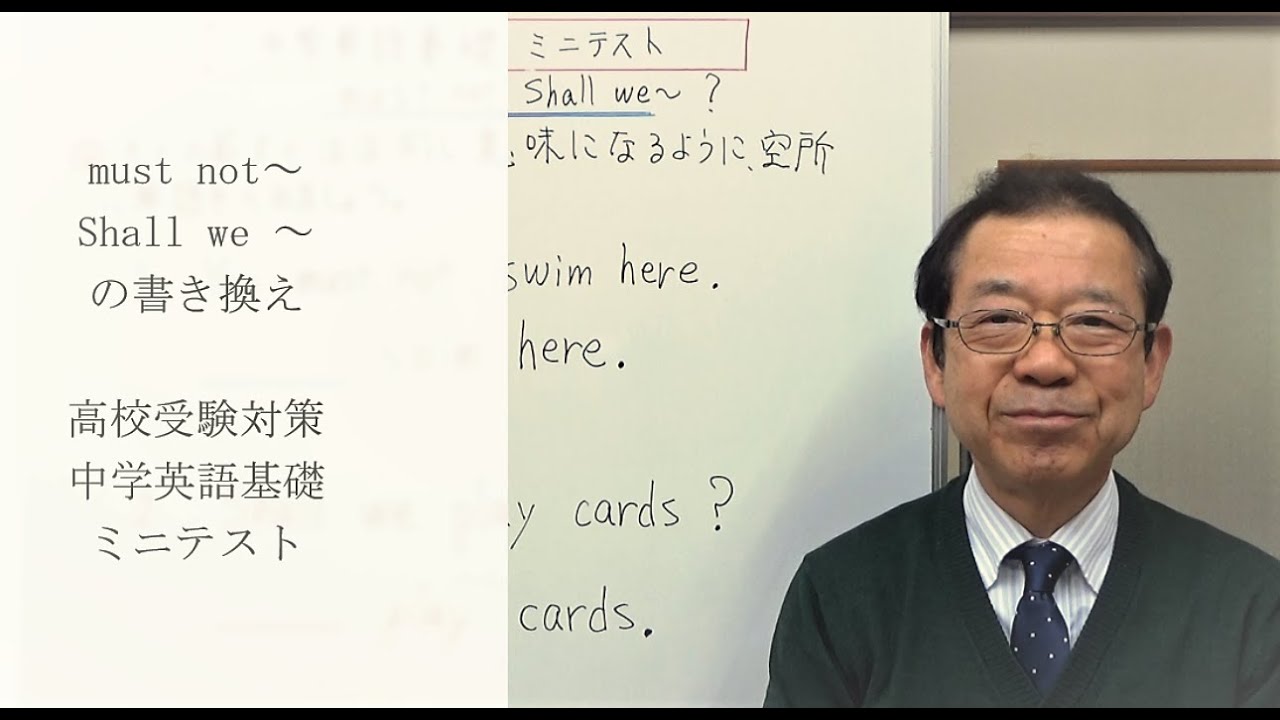 must not～
Shall we ～
の書き換え
高校受験対策
中学英語基礎
ミニテスト
ミニテスト
Shall we～ ?
味になるように、空所
swim here.
here.
cards ?
cards.